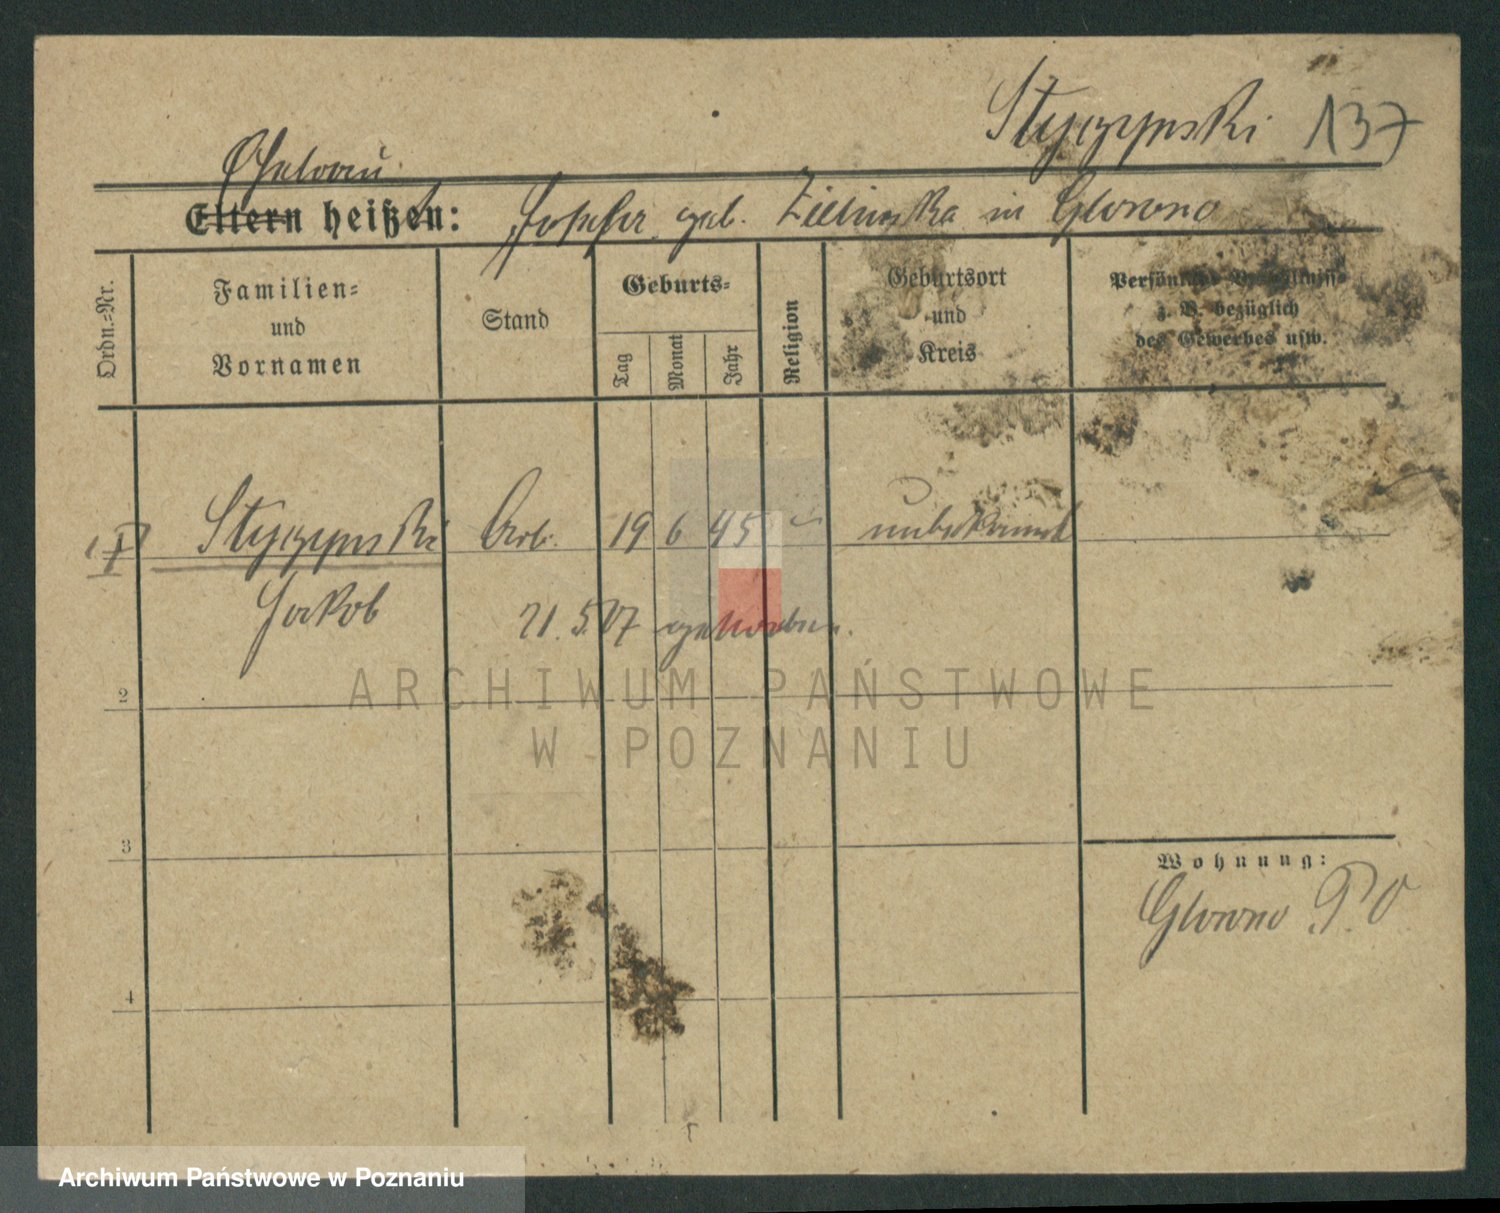 Styczynski 137
Ehefrau
Eltern heißen: Josefa geb. Zielinska in Glowno
Ordn.-Nr.
Familien-
und
Vornamen
Stand
Geburts-
Tag
Monat
Jahr
Religion
Geburtsort
und
Kreis
Persönliche Verhältnisse
z. B. bezüglich
des Gewerbes usw.
1 Styczynski Arb. 19 6 45 unbekannt
Jakob 21.5.07 gestorben.
2
3
4
Wohnung:
Glowno P.O
ARCHIWUM PAŃSTWOWE
W POZNANIU
Archiwum Państwowe w Poznaniu